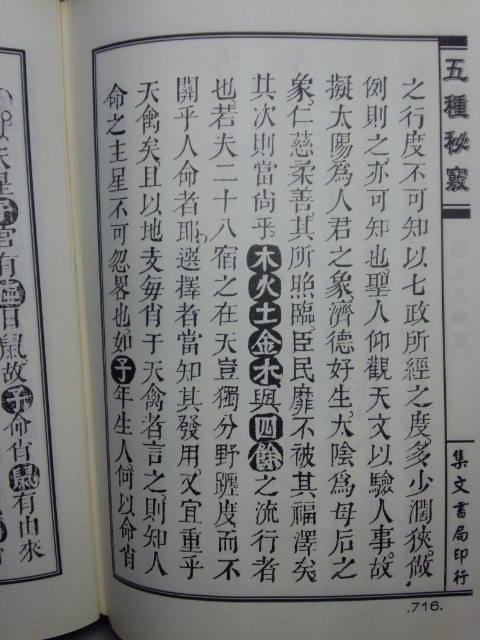 五種秘竅
之行度不可知以七政所經之度多少濶狹倣
例則之亦可知也聖人仰觀天文以驗人事故
擬太陽為人君之象濟德好生太陰為母后之
象仁慈柔善其所照臨臣民靡不被其福澤矣
其次則當尚乎木火土金水與四餘之流行者
也若夫二十八宿之在天豈獨分野躔度而不
關乎人命者耶選擇者當知其發用又宜重乎
天禽矣且以地支每肖于天禽者言之則知人
命之主星不可忽畧也如子年生人何以命肖
集文書局印行
.716.
宮有
日鼠故子命肖鼠有由來